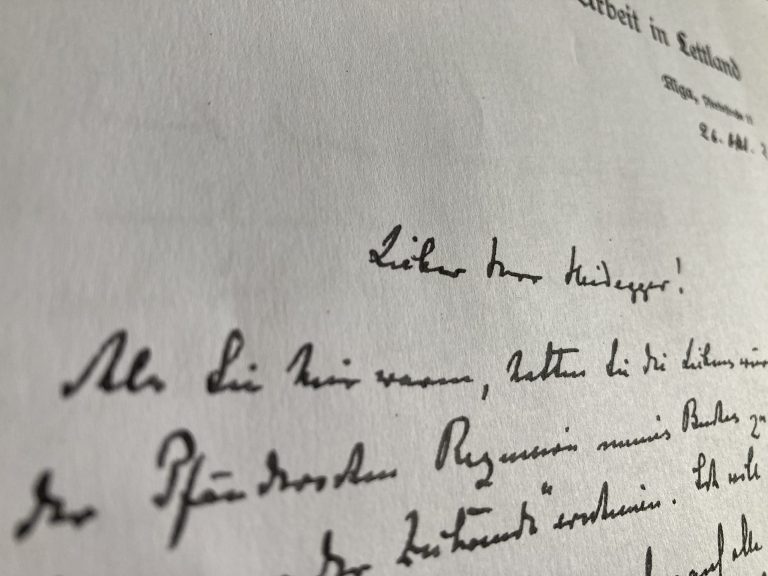 Arbeit in Lettland
Riga,
26. Okt.
Lieber Herr Heidegger!
Als Sie hier waren, hatten Sie die
der Pfänderschen Rezension meines Buches zu
der erscheinen. Ich will
auf alle